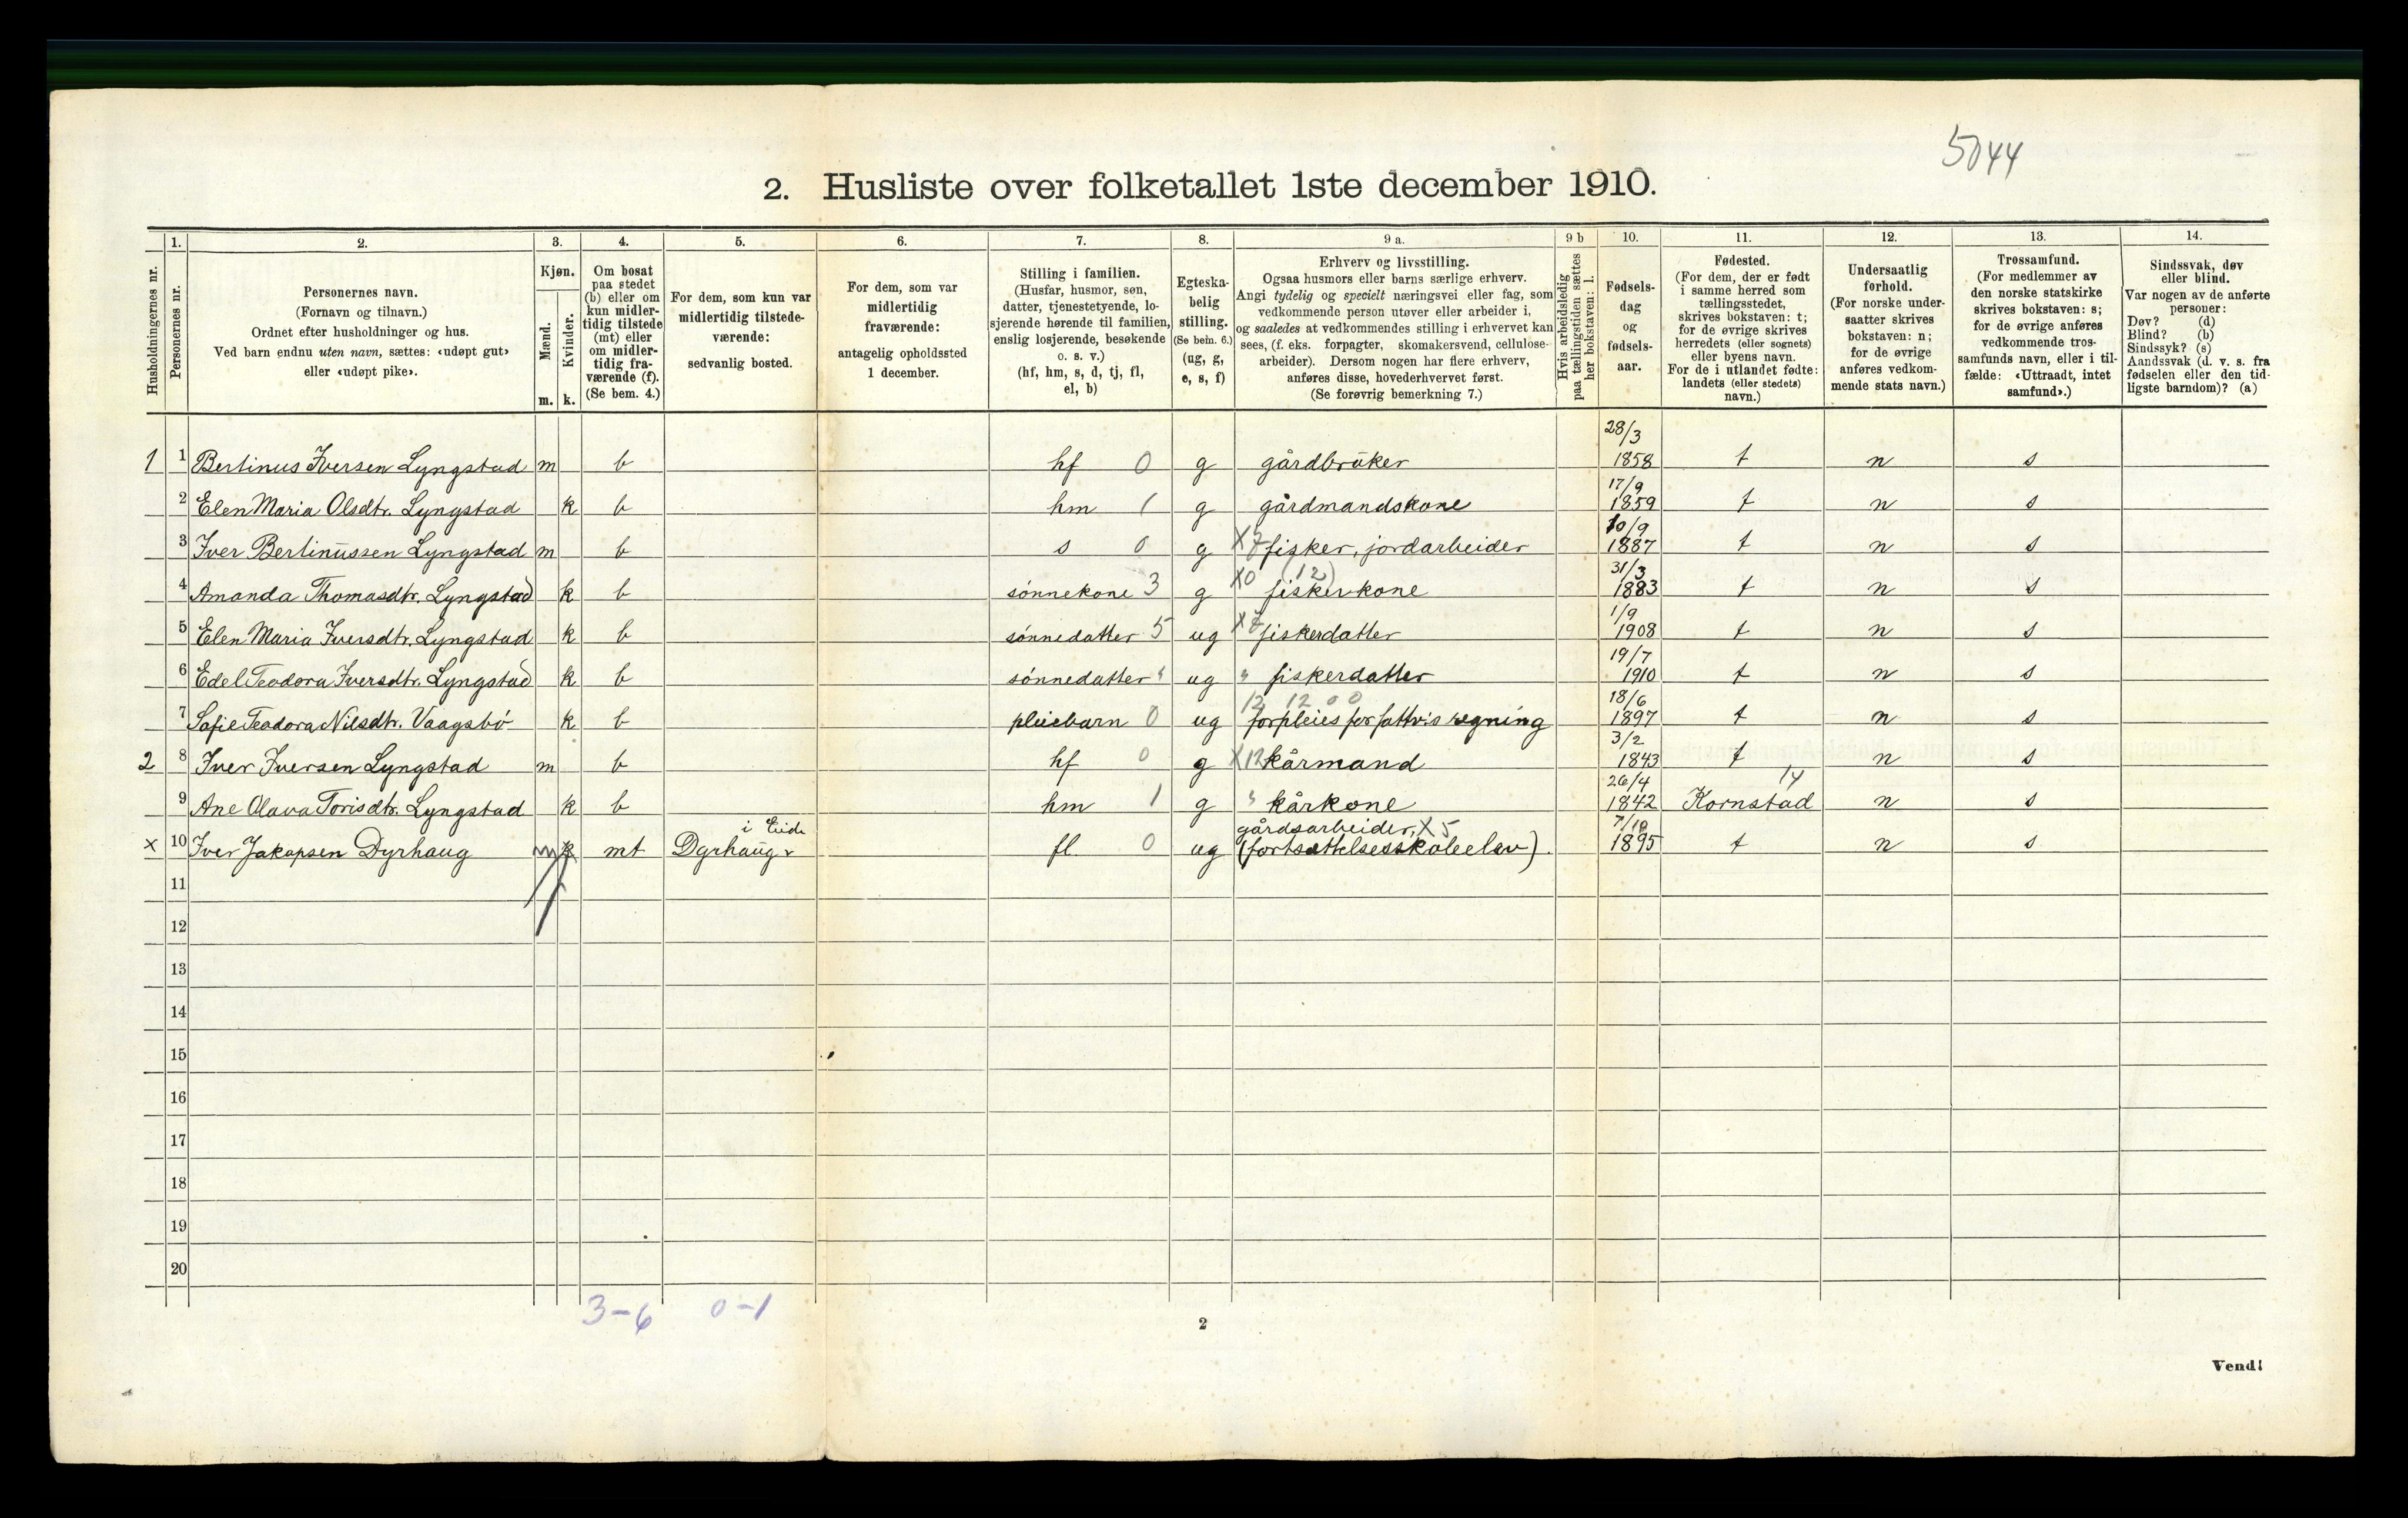 5044
2. Husliste over folketallet 1ste december 1910.
Husholdningernes nr.
1. Personernes nr.
2. Personernes navn.
(Fornavn og tilnavn.)
Ordnet efter husholdninger og hus.
Ved barn endnu uten navn, sættes: «udøpt gut»
eller «udøpt pike».
3. Kjøn.
Mænd. Kvinder.
m. k.
4. Om bosat
paa stedet
(b) eller om
kun midler-
tidig tilstede
(mt) eller
om midler-
tidig fra-
værende (f).
(Se bem. 4.)
5. For dem, som kun var
midlertidig tilstede-
værende:
sedvanlig bosted.
6. For dem, som var
midlertidig
fraværende:
antagelig opholdssted
1 december.
7. Stilling i familien.
(Husfar, husmor, søn,
datter, tjenestetyende, lo-
sjerende hørende til familien,
enslig losjerende, besøkende
o. s. v.)
(hf, hm, s, d, tj, fl,
el, b)
8. Egteska-
belig
stilling.
(Se bem. 6.)
(ug, g,
e, s, f)
9 a. Erhverv og livsstilling.
Ogsaa husmors eller barns særlige erhverv.
Angi tydelig og specielt næringsvei eller fag, som
vedkommende person utøver eller arbeider i,
og saaledes at vedkommendes stilling i erhvervet kan
sees, (f. eks. forpagter, skomakersvend, cellulose-
arbeider). Dersom nogen har flere erhverv,
anføres disse, hovederhvervet først.
(Se forøvrig bemerkning 7.)
9 b Hvis arbeidsledig
paa tællingstiden sættes
her bokstaven: l.
10. Fødsels-
dag
og
fødsels-
aar.
11. Fødested.
(For dem, der er født
i samme herred som
tællingsstedet,
skrives bokstaven: t;
for de øvrige skrives
herredets (eller sognets)
eller byens navn.
For de i utlandet fødte:
landets (eller stedets)
navn.)
12. Undersaatlig
forhold.
(For norske under-
saatter skrives
bokstaven: n;
for de øvrige
anføres vedkom-
mende stats navn.)
13. Trossamfund.
(For medlemmer av
den norske statskirke
skrives bokstaven: s;
for de øvrige anføres
vedkommende tros-
samfunds navn, eller i til-
fælde: «Uttraadt, intet
samfund».)
14. Sindssvak, døv
eller blind.
Var nogen av de anførte
personer:
Døv? (d)
Blind? (b)
Sindssyk? (s)
Aandssvak (d. v. s. fra
fødselen eller den tid-
ligste barndom)? (a)
1 1 Bertinus Iversen Lyngstad m b hf 0 g gårdbrüker 28/3 1858 t n s
2 Elen Maria Olsdtr. Lyngstad k b hm 1 g gårdmandskone 17/9 1859 t n s
3 Iver Bertinüssen Lyngstad m b s 0 g X7 fisker, jordarbeider 10/9 1887 t n s
4 Amanda Thomasdtr. Lyngstad k b sønnekone 3 g X0 (12) fiskerkone 31/3 1883 t n s
5 Elen Maria Iversdtr. Lyngstad k b sønnedatter 5 ug X7 fiskerdatter 1/9 1908 t n s
6 Edel Teodora Iversdtr. Lyngstad k b sønnedatter " ug " fiskerdatter 19/7 1910 t n s
7 Sofie Teodora Nilsdtr. Vaagsbø k b pleiebarn 0 ug 12 12 0 0 forpleies for fattv:s regning 18/6 1897 t n s
2 8 Iver Iversen Lyngstad m b hf 0 g X12 kårmand 3/2 1843 t n s
9 Ane Olava Torisdtr. Lyngstad k b hm 1 g " kårkone 26/4 1842 Kornstad 14 n s
x 10 Iver Jakopsen Dyrhaug m k mt Dyrhaüg i Eide fl 0 ug gårdsarbeider, X5 (fortsættelsesskoleelev). 7/10 1895 t n s
11
12
13
14
15
16
17
18
19
20
3-6 0-1
2
Vend!